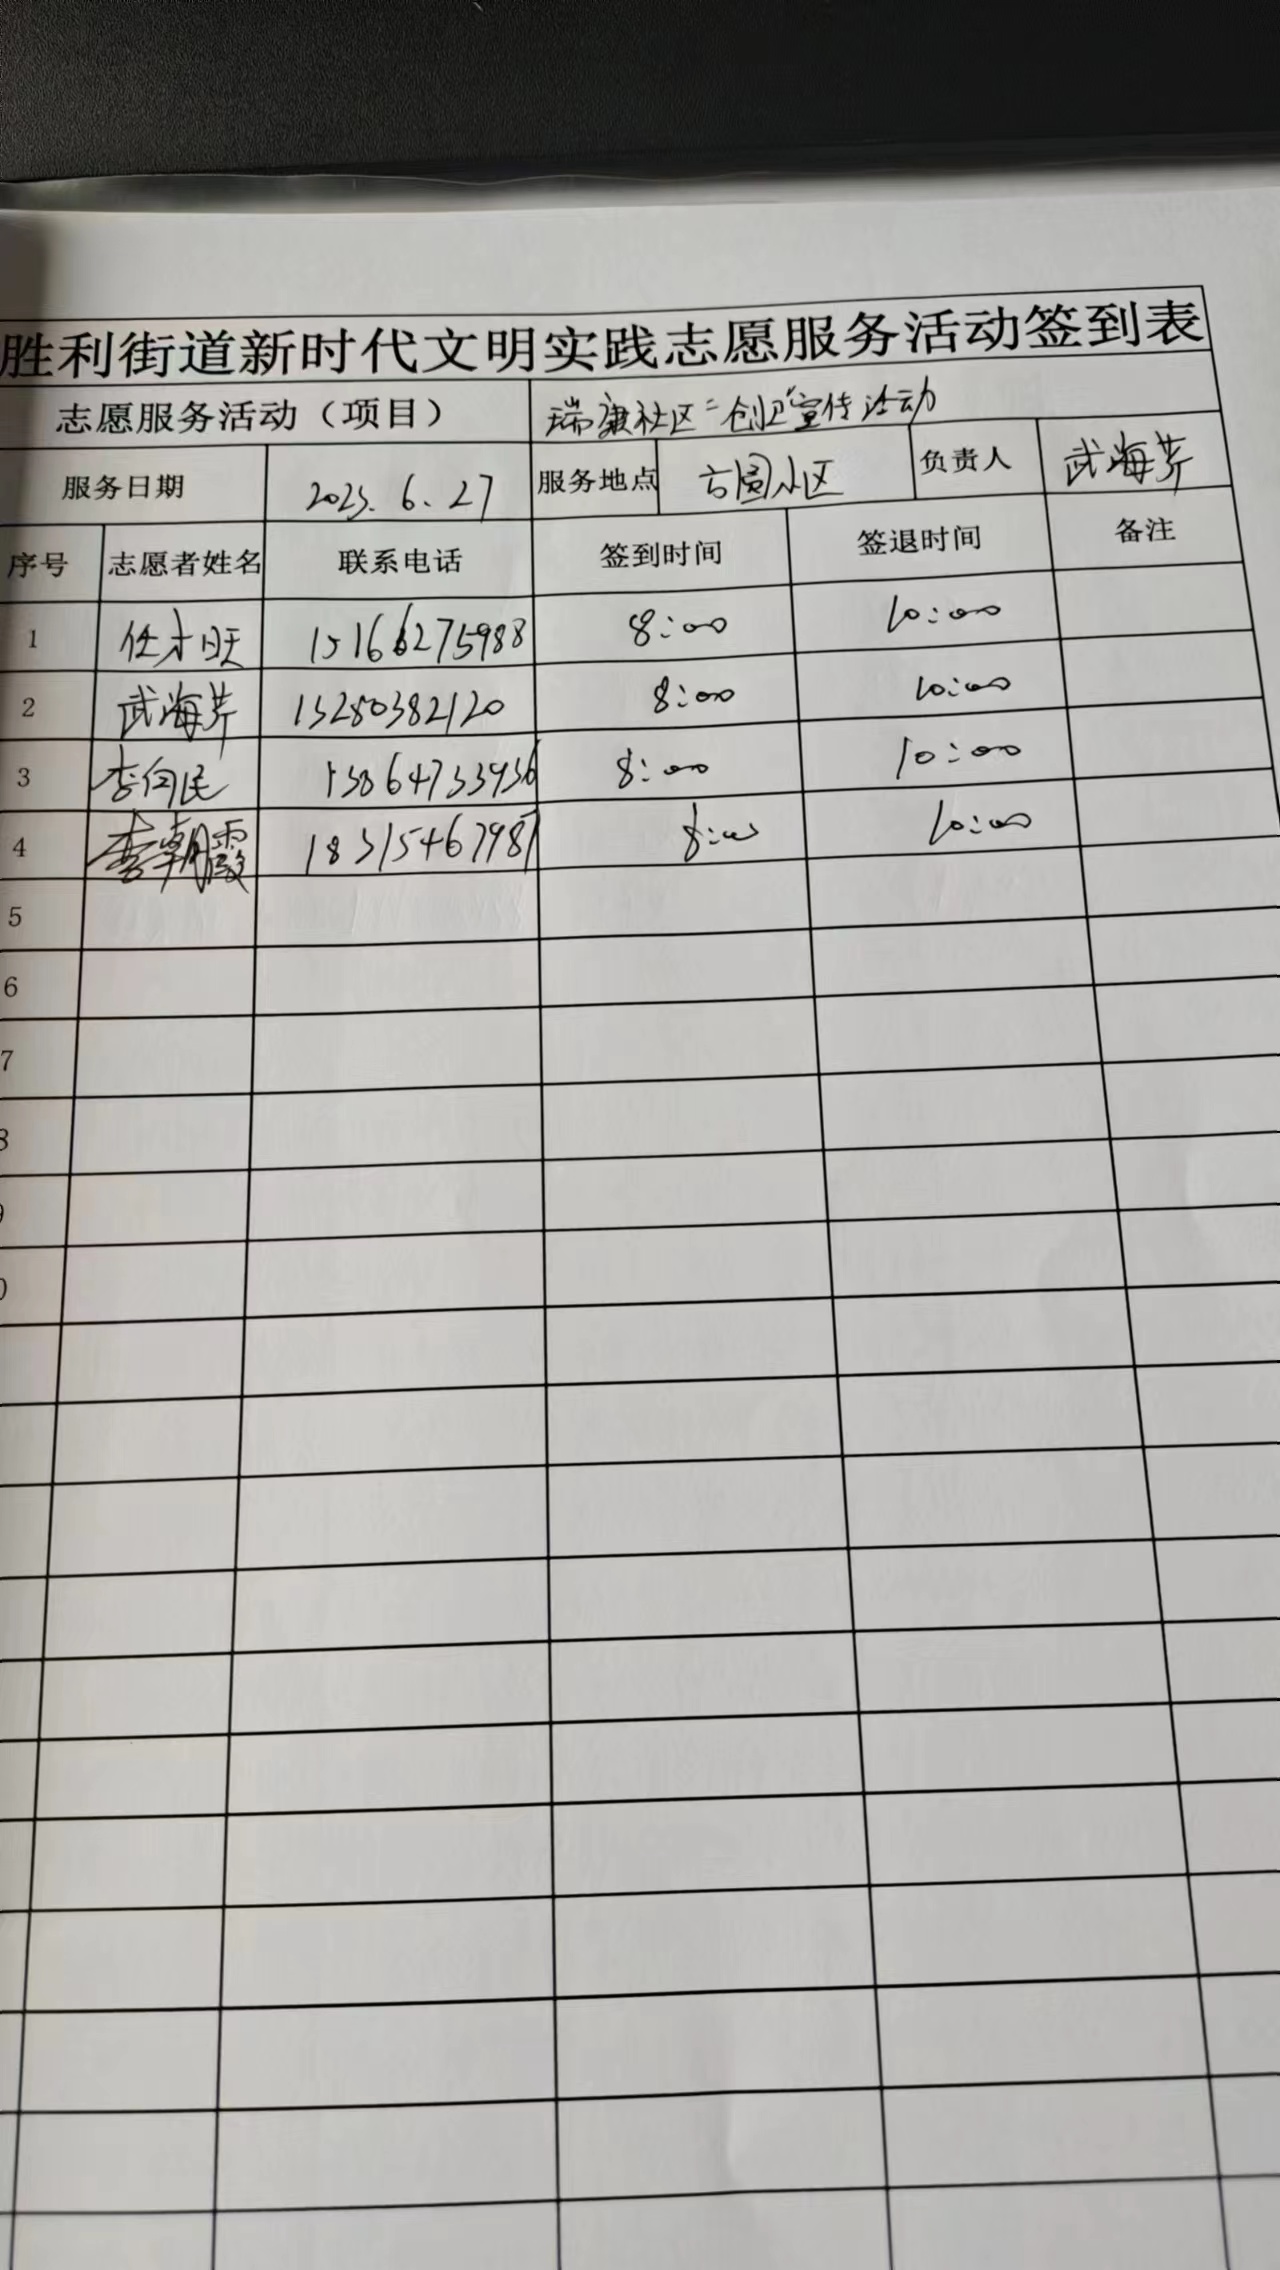 胜利街道新时代文明实践志愿服务活动签到表
志愿服务活动（项目） 瑞康社区"创卫"宣传活动
服务日期 2023.6.27 服务地点 方圆小区 负责人 武海芹
序号 志愿者姓名 联系电话 签到时间 签退时间 备注
1 任才旺 15166275988 8:00 10:00
2 武海芹 13280382120 8:00 10:00
3 李向民 13864733936 8:00 10:00
4 李朝霞 18315467987 8:00 10:00
5
6
7
8
9
0